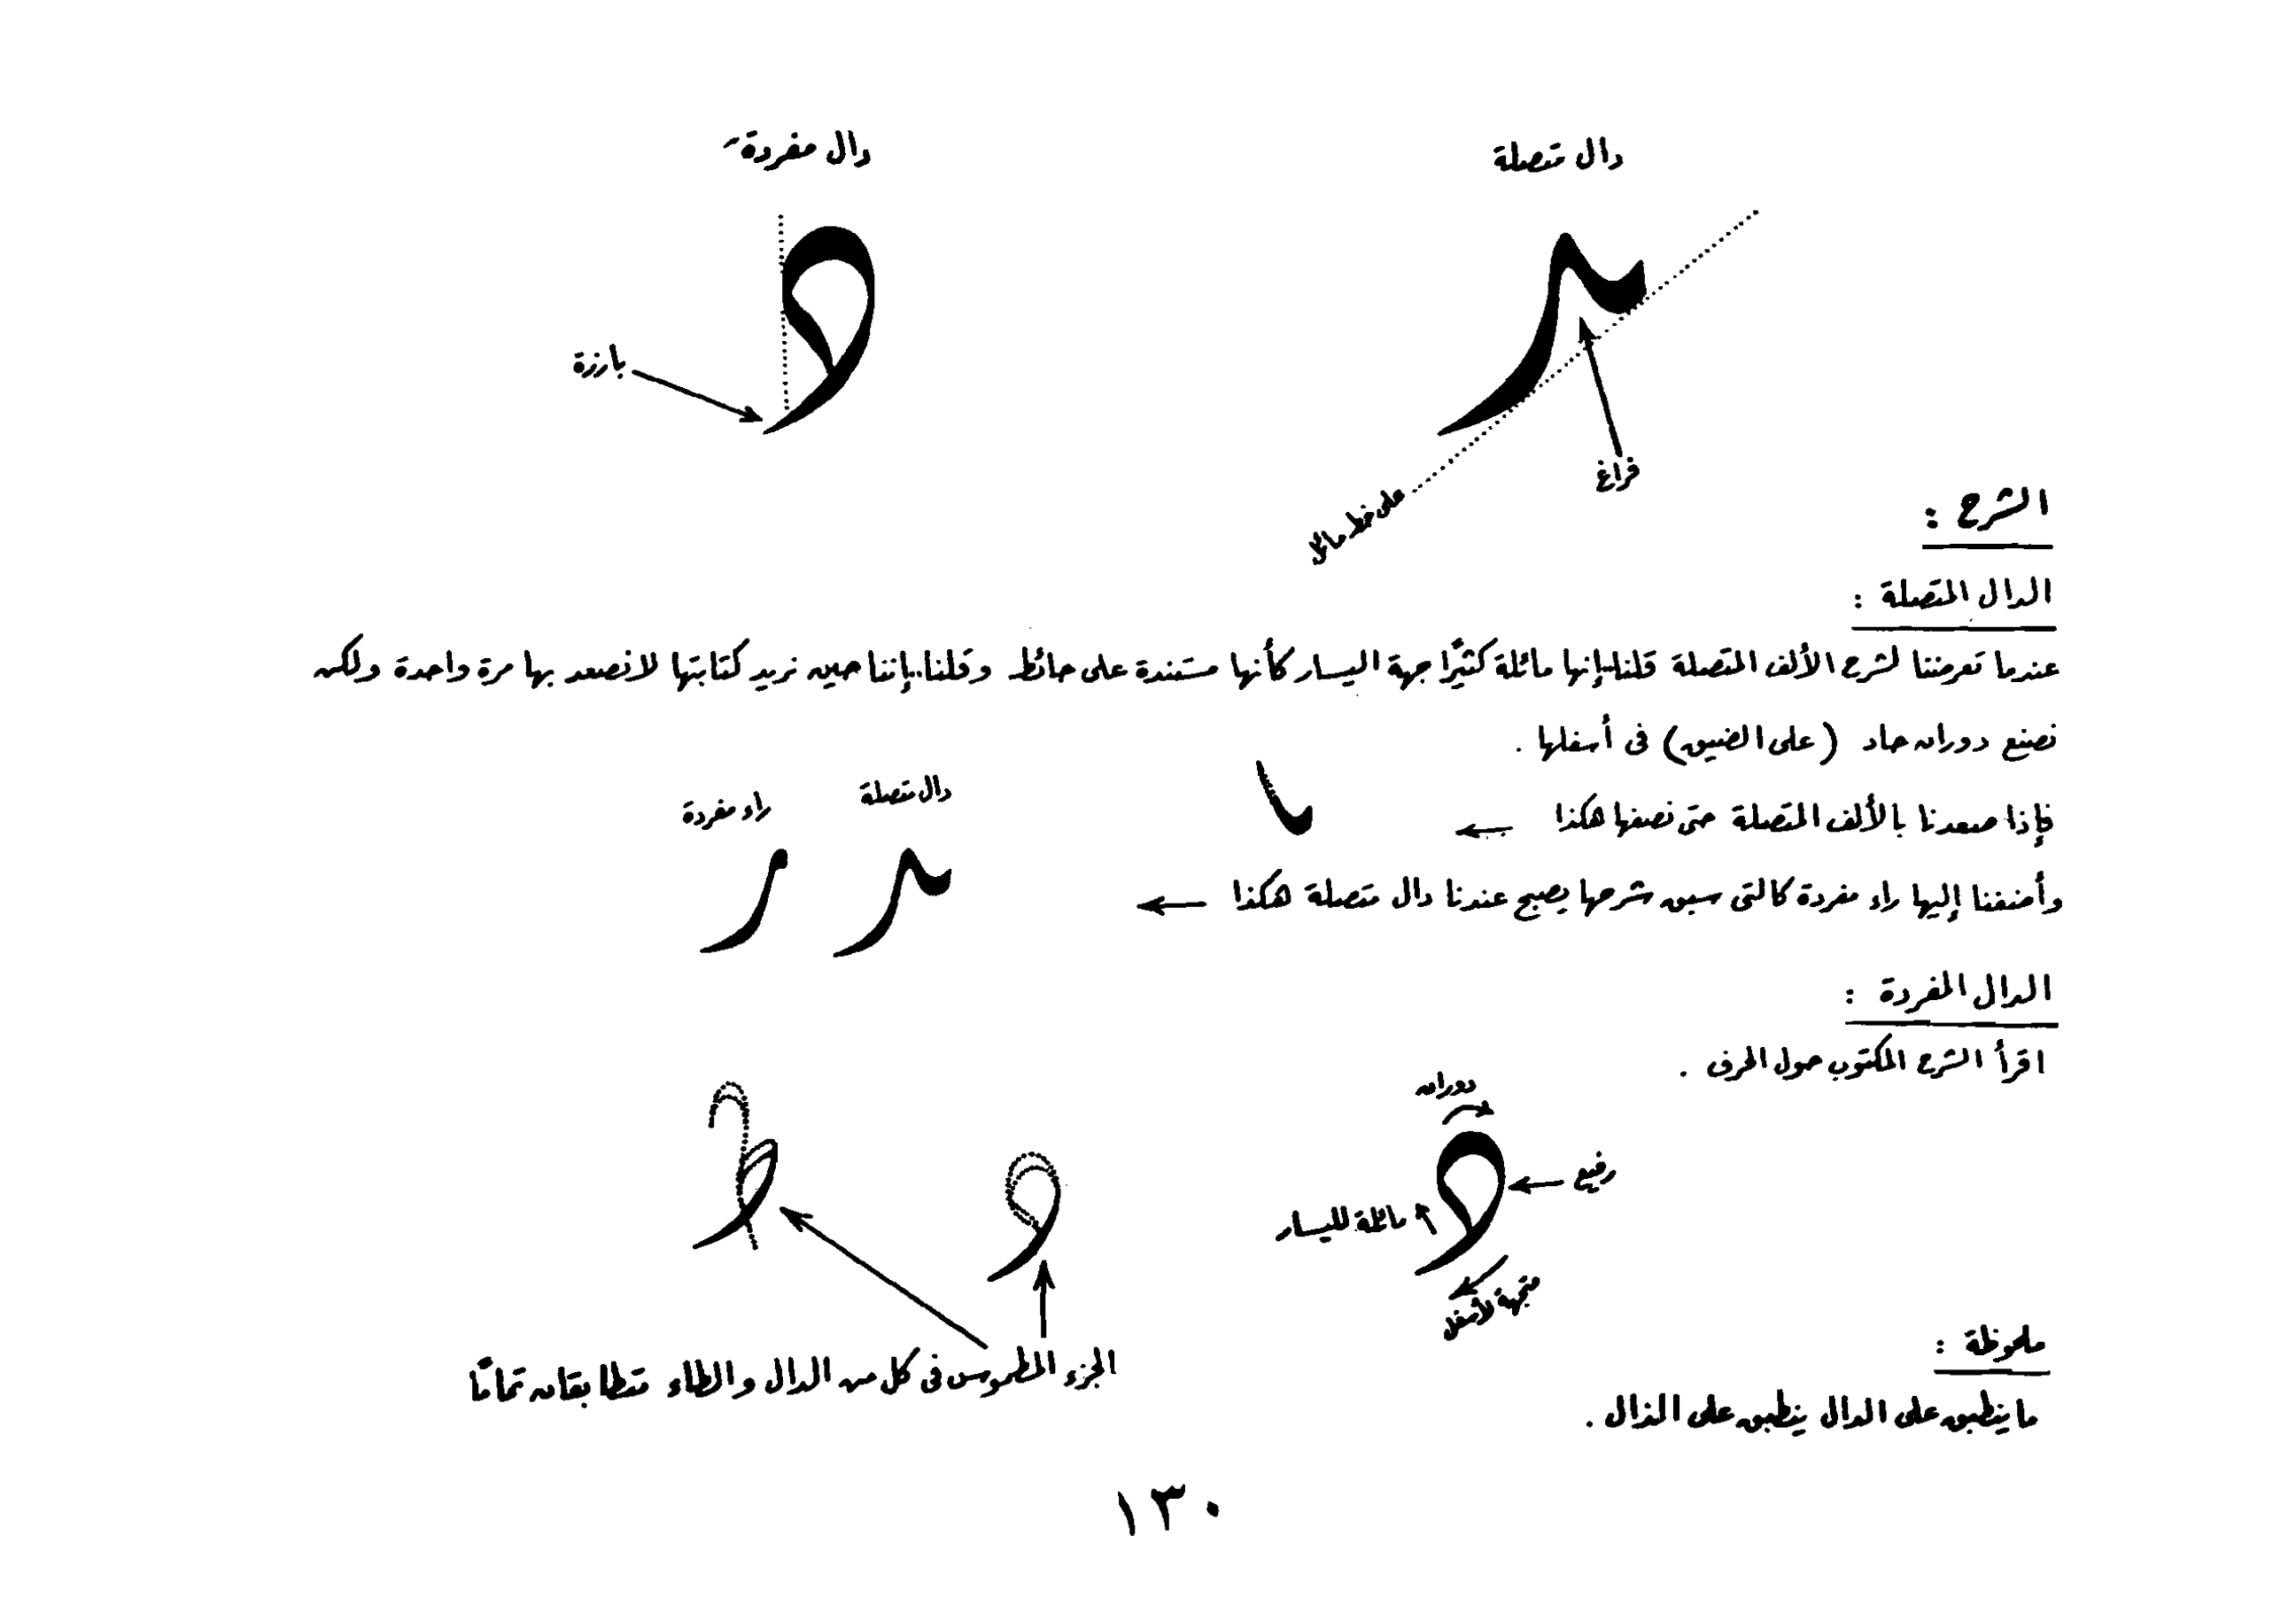 دال متصلة
دال مفردة
بارزة
فراغ
على خط مائل
الشرح :
الدال المتصلة :
عندما تعرضنا لشرح الألف المتصلة قلنا بإنها مائلة كثيرًا جهة اليسار كأنها مستندة على حائط وقلنا بإننا حين نريد كتابتها لا نصعد بها مرة واحدة ولكن
نصنع دوران حاد (على الضيق) فى أسفلها .
فإذا صعدنا بالألف المتصلة حتى نصفها هكذا
دال متصلة
راء مفردة
وأضفنا إليها راء مفردة كالتى سبق شرحها يصبح عندنا دال متصلة هكذا
الدال المفردة :
اقرأ الشرح المكتوب حول الحرف .
دوران
رفيع
مائلة لليسار
متجهة لأسفل
الجزء المطموس فى كل من الدال والطاء متطابقان تمامًا
ملحوظة :
ما ينطبق على الدال ينطبق على الذال .
١٣٠